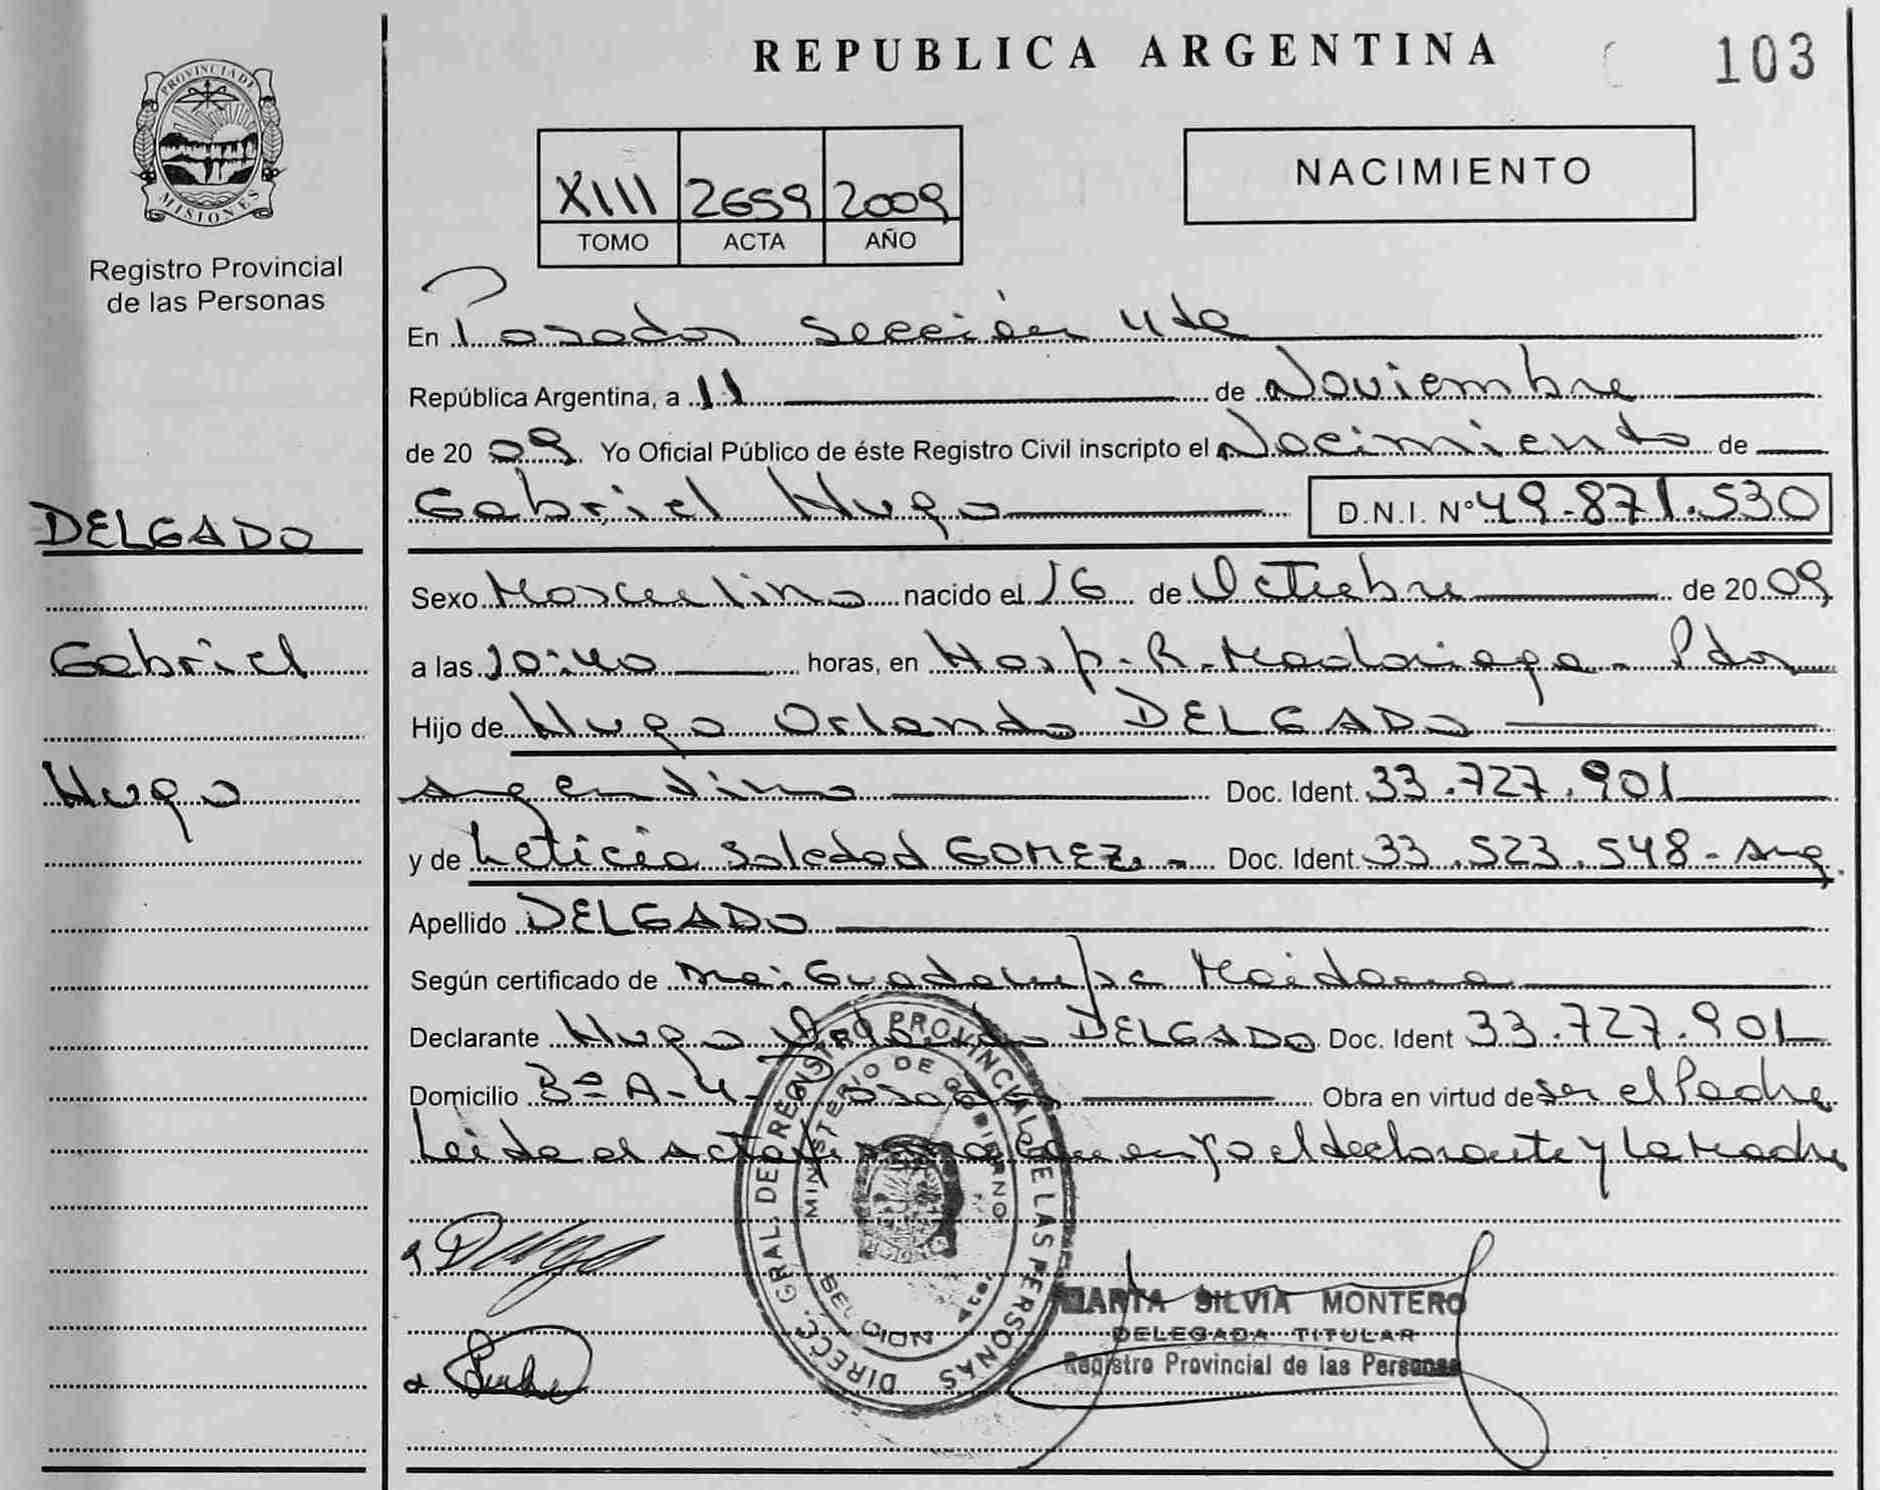 REPUBLICA ARGENTINA
103
PROVINCIA DE
MISIONES
Registro Provincial
de las Personas
XIII 2659 2009
TOMO ACTA AÑO
NACIMIENTO
En Posadas Sección 4ta
República Argentina, a 11 de Noviembre
de 2009 Yo Oficial Público de éste Registro Civil inscripto el Nacimiento de
DELGADO
Gabriel Hugo D.N.I. N° 49.871.530
Sexo Masculino nacido el 16 de Octubre de 2009
Gabriel
a las 10:40 horas, en Hosp. R. Madariaga - Pdas
Hijo de Hugo Orlando DELGADO
Hugo
Argentino Doc. Ident. 33.727.901
y de Leticia Soledad GOMEZ.- Doc. Ident. 33.523.548 - Arg.
Apellido DELGADO
Según certificado de Guadalupe Maidana
Declarante Hugo Orlando DELGADO Doc. Ident 33.727.901
Domicilio Bº A-4- Posadas Obra en virtud de ser el Padre
Leida el acta firman el declarante y la Madre
DIREC. GRAL. DE REGISTRO PROVINCIAL DE LAS PERSONAS
MINISTERIO DE GOBIERNO
MARTA SILVIA MONTERO
DELEGADA TITULAR
Registro Provincial de las Personas